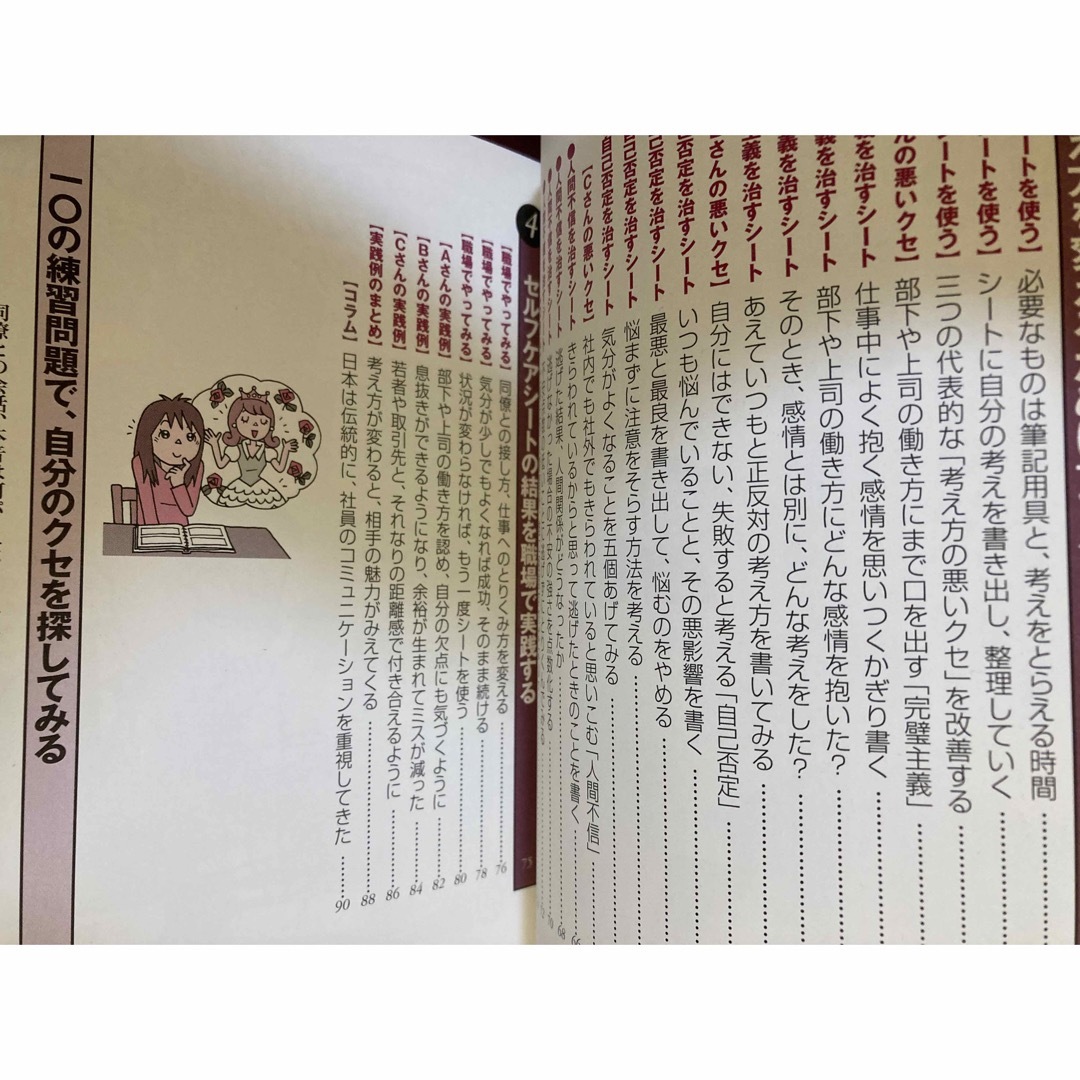 ートを使う】必要なものは筆記用具と、考えをとらえる時間
ートを使う】シートに自分の考えを書き出し、整理していく
ートを使う】三つの代表的な「考え方の悪いクセ」を改善する
んの悪いクセ】部下や上司の働き方にまで口を出す「完璧主義」
義を治すシート 仕事中によく抱く感情を思いつくかぎり書く
義を治すシート 部下や上司の働き方にどんな感情を抱いた?
義を治すシート そのとき、感情とは別に、どんな考えをした?
主義を治すシート あえていつもと正反対の考え方を書いてみる
さんの悪いクセ】自分にはできない、失敗すると考える「自己否定」
否定を治すシート いつも悩んでいることと、その悪影響を書く
己否定を治すシート 最悪と最良を書き出して、悩むのをやめる
己否定を治すシート 悩まずに注意をそらす方法を考える
自己否定を治すシート 気分がよくなることを五個あげてみる
【Cさんの悪いクセ】社内でも社外でもきらわれていると思いこむ「人間不信」
●人間不信を治すシート きらわれているからと思って逃げたときのことを書く 66
●人間不信を治すシート 逃げた結果、人間関係がどうなったか 68
逃げなかった場合の不安の強さを点数化する 70
4 セルフケアシートの結果を職場で実践する 75
【職場でやってみる】同僚との接し方、仕事へのとりくみ方を変える 76
【職場でやってみる】気分が少しでもよくなれば成功、そのまま続ける 78
【職場でやってみる】状況が変わらなければ、もう一度シートを使う 80
【Aさんの実践例】部下や上司の働き方を認め、自分の欠点にも気づくように 82
【Bさんの実践例】息抜きができるようになり、余裕が生まれてミスが減った 84
【Cさんの実践例】若者や取引先と、それなりの距離感で付き合えるように 86
【実践例のまとめ】考え方が変わると、相手の魅力がみえてくる 88
【コラム】日本は伝統的に、社員のコミュニケーションを重視してきた 90
一〇の練習問題で、自分のクセを探してみる